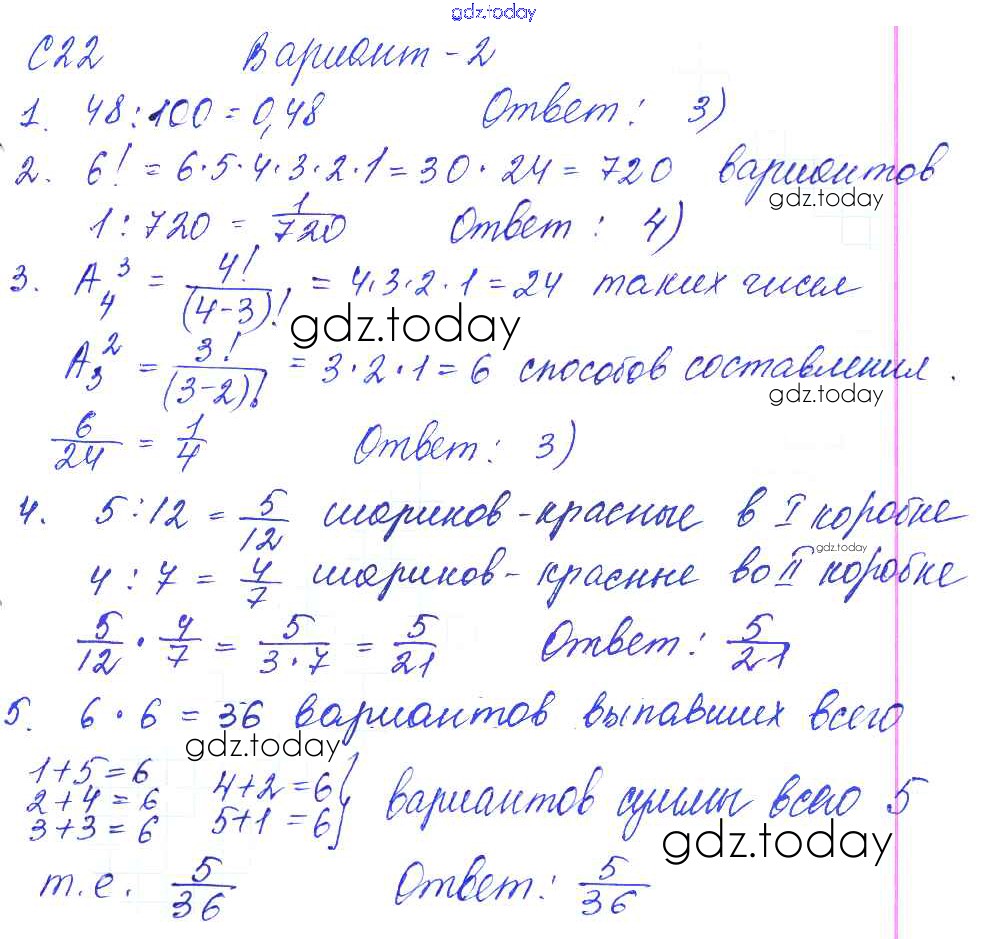 gdz.today
С22 Вариант - 2
1. 48 : 100 = 0,48 Ответ: 3)
2. 6! = 6·5·4·3·2·1 = 30 · 24 = 720 вариантов
gdz.today
1 : 720 = 1/720 Ответ: 4)
3. A₄³ = 4!/(4-3)! = 4·3·2·1 = 24 таких чисел
gdz.today
A₃² = 3!/(3-2)! = 3·2·1 = 6 способов составления.
gdz.today
6/24 = 1/4 Ответ: 3)
4. 5 : 12 = 5/12 шариков - красные в I коробке
gdz.today
4 : 7 = 4/7 шариков - красные во II коробке
5/12 · 4/7 = 5/3·7 = 5/21 Ответ: 5/21
5. 6 · 6 = 36 вариантов выпавших всего
gdz.today
1+5=6 4+2=6
2+4=6 5+1=6} вариантов суммы всего 5
3+3=6
gdz.today
т.е. 5/36 Ответ: 5/36